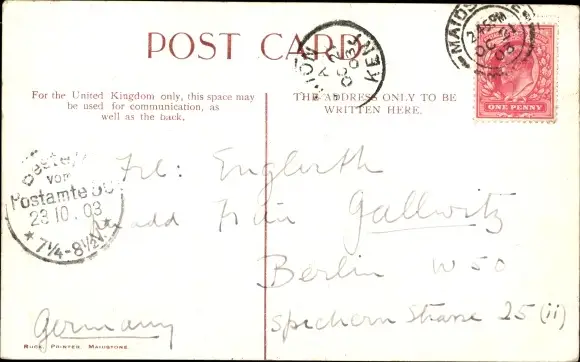 POST CARD
For the United Kingdom only, this space may
be used for communication, as
well as the back.
THE ADDRESS ONLY TO BE
WRITTEN HERE.
ONE PENNY
KENT
vom
Postamte 50
23 10. 03
7¼-8½V.
Frl: Englerth
add Frau Gallwitz
Berlin W 50
Spichern Strasse 25 (ii)
Germany
RUCK, PRINTER, MAIDSTONE.